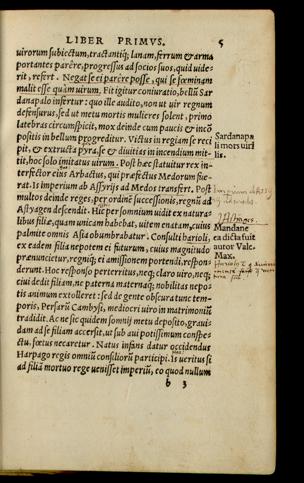 LIBER PRIMVS. 5
uirorum subiectum, tractantiq; lanam, ferrum & arma
portantes parêre, progressus ad socios suos, quid uide-
rit, refert. Negat se ei parêre posse, qui se fœminam
malit esse quàm uirum. Fit igitur coniuratio, bellũ Sar
danapalo infertur: quo ille audito, non ut uir regnum
defensurus, sed ut metu mortis mulieres solent, primo
latebras circumspicit, mox deinde cum paucis & incõ
positis in bellum progreditur. Victus in regiam se reci
pit, & extructa pyra, se & diuitias in incendium mit-
tit, hoc solo imitatus uirum. Post hæc statuitur rex in-
terfector eius Arbactus, qui præfectus Medorum fue-
rat. Is imperium ab Assyrijs ad Medos transfert. Post
multos deinde reges, per ordinẽ successionis, regnũ ad
Astyagen descendit. Hic per somnium uidit ex natura-
libus filiæ, quam unicam habebat, uitem enatam, cuius
palmite omnis Asia obumbrabatur. Consulti harioli,
ex eadem filia nepotem ei futurum, cuius magnitudo
prænuncietur, regniq; ei amissionem portendi, respon-
derunt. Hoc responso perterritus, neq; claro uiro, neq;
ciui dedit filiam, ne paterna maternaq; nobilitas nepo-
tis animum extolleret: sed de gente obscura tunc tem-
poris, Persarũ Cambysi, mediocri uiro in matrimoniũ
tradidit. Ac ne sic quidem somnij metu deposito, graui-
dam ad se filiam accersit, ut sub aui potissimum conspe-
ctu, fœtus necaretur. Natus infans datur occidendus
Harpago regis omniũ consiliorũ participi. Is ueritus si
ad filiã mortuo rege uenisset imperiũ, eo quod nullum
b 3
Sardanapa
li mors uiri
lis.
Astiages.
Mandane
ea dicta fuit
autor Vale.
Max.